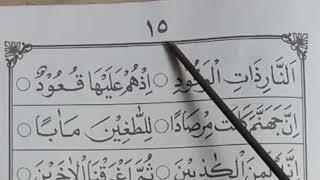 ١٥
اَلنَّارِ ذَاتِ الْوَقُوْدِ ○ اِذْهُمْ عَلَيْهَا قُعُوْدٌ ○
اِنَّ جَهَنَّمَ كَانَتْ مِرْصَادًا ○ لِلطّٰغِيْنَ مَاٰبًا ○
الْكٰذِبِيْنَ ○ ثُمَّ اَغْرَقْنَا الْاٰخَرِيْنَ